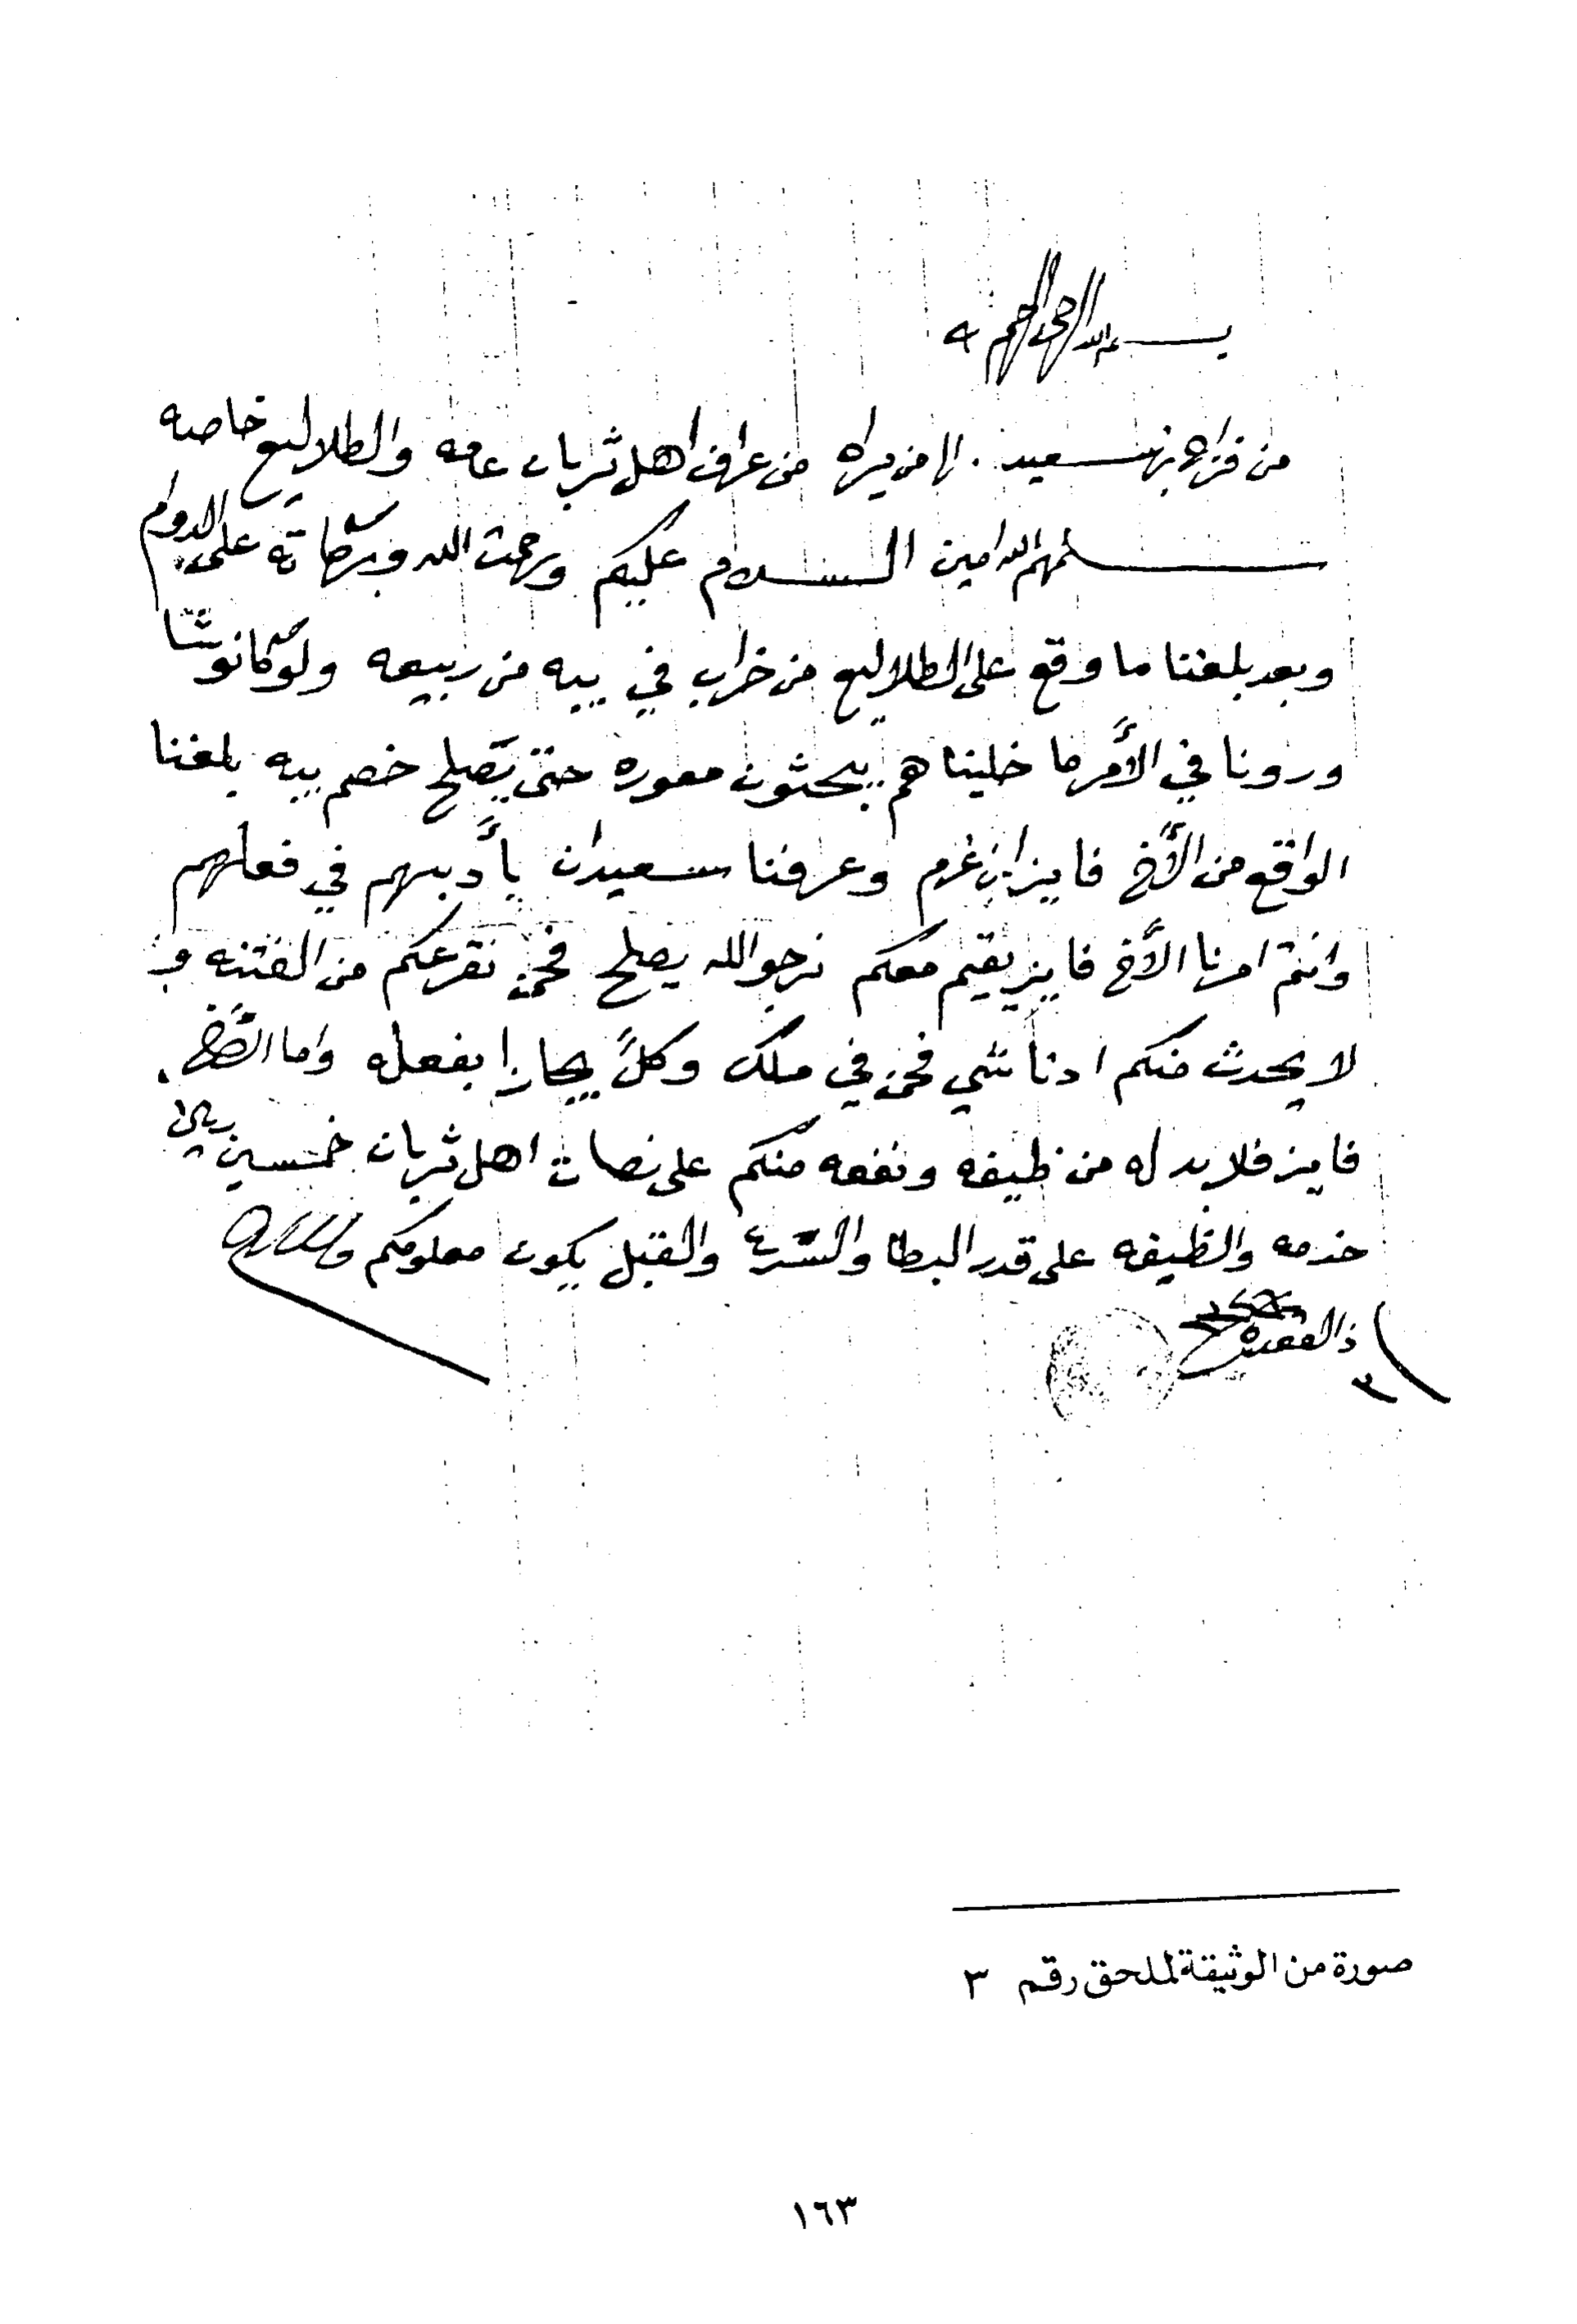 بسم الله الرحمن الرحيم
من فراج بن سعيد الا من يراه من عراف اهل ثربان عامه والطلاليع خاصه
سلمهم الله امين السلام عليكم ورحمت الله وبركاته على الدوام
وبعد بلغنا ما وقع على الطلاليع من خراب في بيه من ربيعه ولو كانو شا
ورونا في الأمر ما خليناهم يبحثون معوره حتى يصلح خصم بيه بلغنا
الواقع من الأخ فايز ابن غرم وعرفنا سعيدان يأدبهم في فعلهم
وانتم امرنا الأخ فايز يقيم معكم نرجو الله يصلح فحن نقرعكم من الفتنه و
لا يحدث منكم ادنا شي فحن في ملك وكلً يجازا بفعله واما الأخ
فايز فلا بد له من ظيفه ونفعه منكم على نصات اهل ثربان خمسين ريال
خدمه والظيفه على قدر البطا والسرع والقبل يكون معلومكم والسلام
٣ ذالقعده
صورة من الوثيقة لملحق رقم ٣
١٦٣